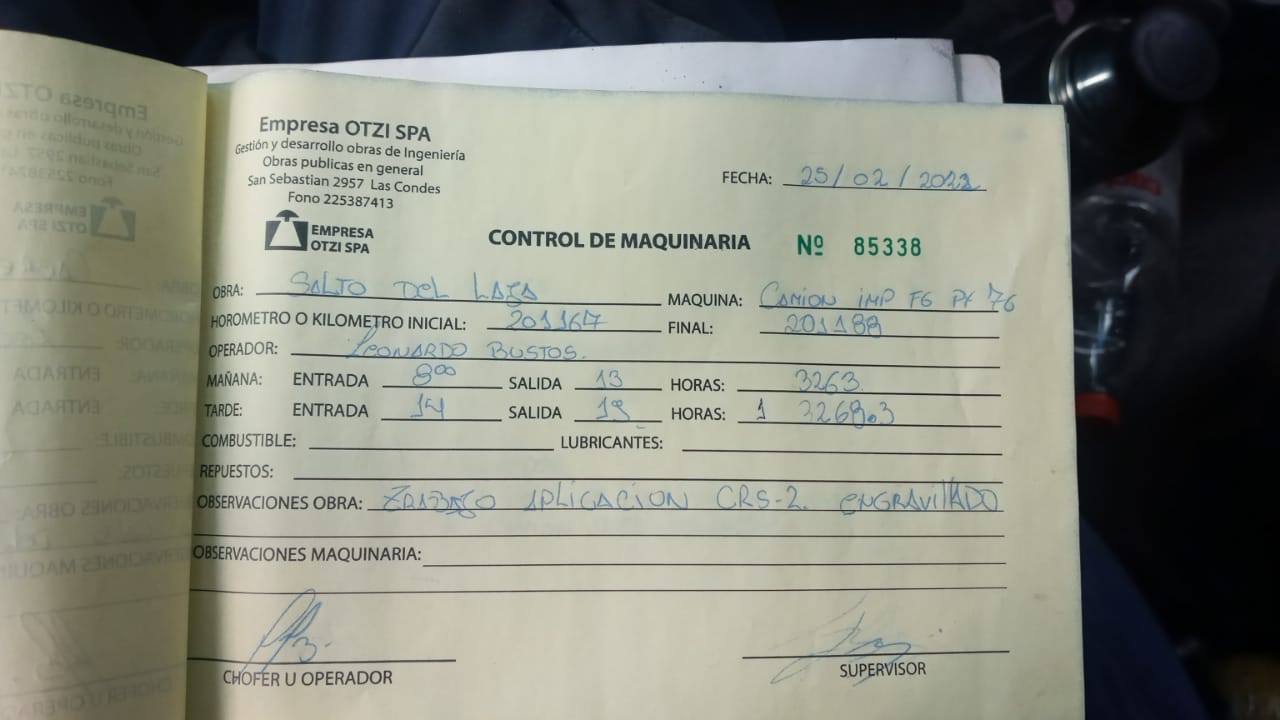 Empresa OTZI SPA
Gestión y desarrollo obras de Ingeniería
Obras publicas en general
San Sebastian 2957 Las Condes
Fono 225387413
EMPRESA
OTZI SPA
FECHA: 25/02/2022
CONTROL DE MAQUINARIA Nº 85338
OBRA: SALTO DEL LAJA MAQUINA: CAMION IMP FG PX 76
HOROMETRO O KILOMETRO INICIAL: 201167 FINAL: 201188
OPERADOR: LEONARDO BUSTOS.
MAÑANA: ENTRADA 8⁰⁰ SALIDA 13 HORAS: 3263
TARDE: ENTRADA 14 SALIDA HORAS: 3268.3
COMBUSTIBLE: LUBRICANTES:
REPUESTOS:
OBSERVACIONES OBRA: TRABAJO APLICACION CRS-2. ENGRAVILLADO
OBSERVACIONES MAQUINARIA:
CHOFER U OPERADOR SUPERVISOR